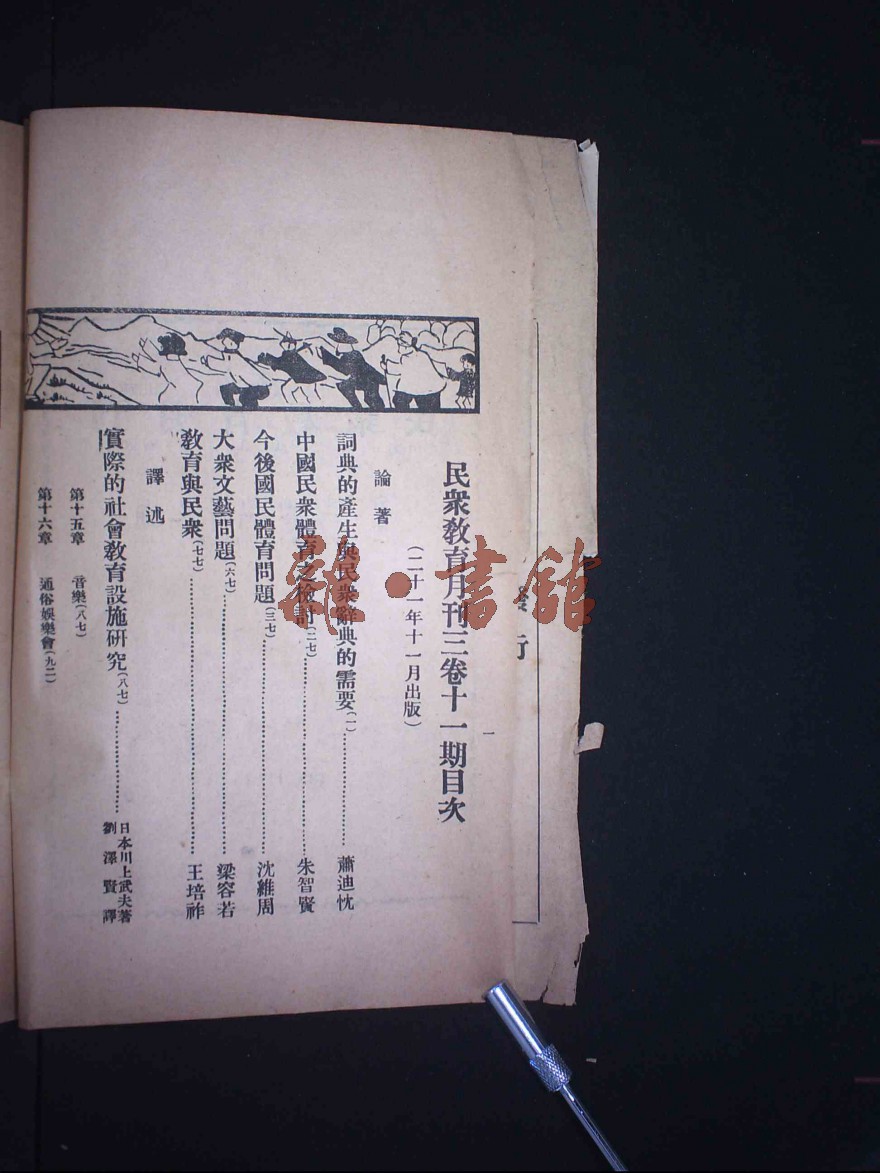 民衆教育月刊三卷十一期目次
(二十一年十一月出版)
論著
詞典的產生與民衆辭典的需要(一)……蕭迪忱
中國民衆體育之檢討(二七)……朱智賢
今後國民體育問題(三七)……沈維周
大衆文藝問題(六七)……梁容若
教育與民衆(七七)……王培祚
譯述
實際的社會教育設施研究(八七)……日本川上武夫著
劉澤賢譯
第十五章 音樂(八七)
第十六章 通俗娛樂會(九二)
一
行
雜·書館